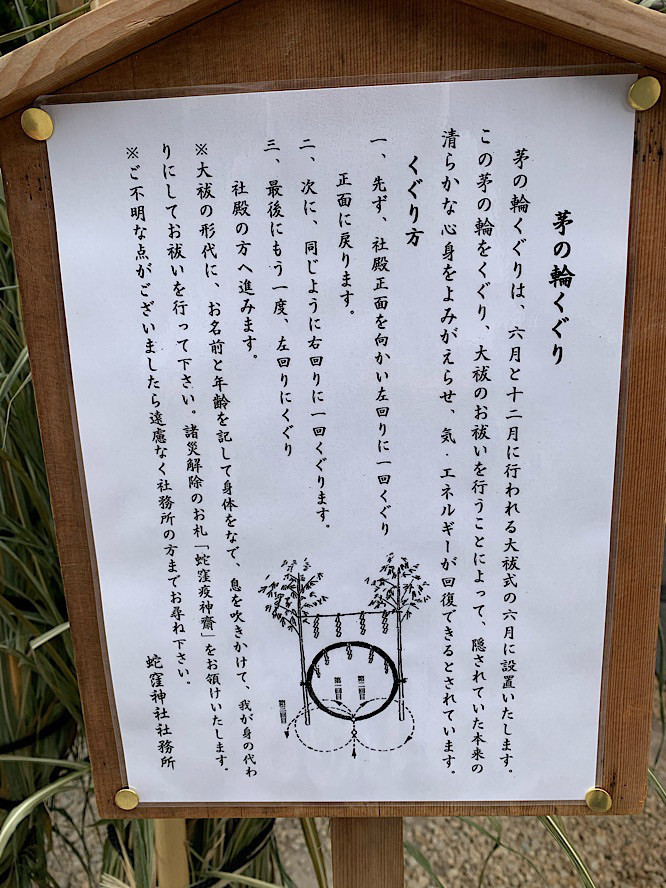 茅の輪くぐり
茅の輪くぐりは、六月と十二月に行われる大祓式の六月に設置いたします。
この茅の輪をくぐり、大祓のお祓いを行うことによって、隠されていた本来の
清らかな心身をよみがえらせ、気・エネルギーが回復できるとされています。
くぐり方
一、先ず、社殿正面を向かい左回りに一回くぐり
正面に戻ります。
二、次に、同じように右回りに一回くぐります。
三、最後にもう一度、左回りにくぐり
社殿の方へ進みます。
※大祓の形代に、お名前と年齢を記して身体をなで、息を吹きかけて、我が身の代わ
りにしてお祓いを行って下さい。諸災解除のお札「蛇窪疫神齋」をお領けいたします。
※ご不明な点がございましたら遠慮なく社務所の方までお尋ね下さい。
蛇窪神社社務所
第二回目
第一回目
第三回目